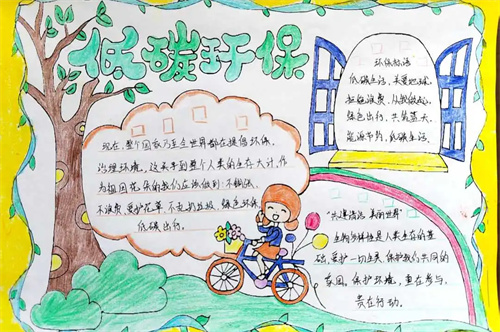 低碳环保
现在,整个国家乃至全世界都在提倡环保、
治理环境。这关乎到整个人类的生存大计,作
为祖国花朵的我们应该做到:不铺张、
不浪费、爱护花草、不乱扔垃圾、绿色环保、
低碳出行。
环保标语
低碳生活,关爱地球。
拒绝浪费,从我做起。
绿色出行,共筑蓝天。
能源节约,低碳生活。
"共建清洁 美丽世界"
生物多样性是人类生存的基
础,爱护一切生灵,保护我们共同的
家园。保护环境,重在参与,
贵在行动。